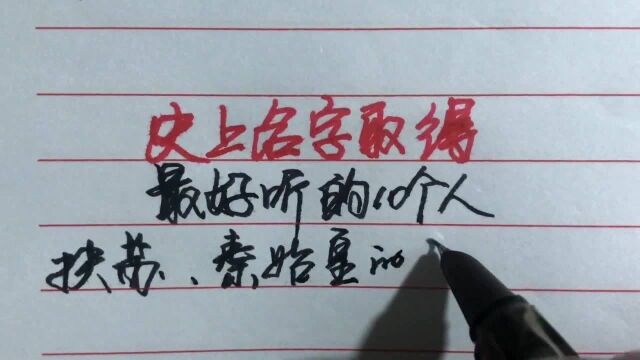 史上名字取得
最好听的10个人
扶苏、秦始皇的